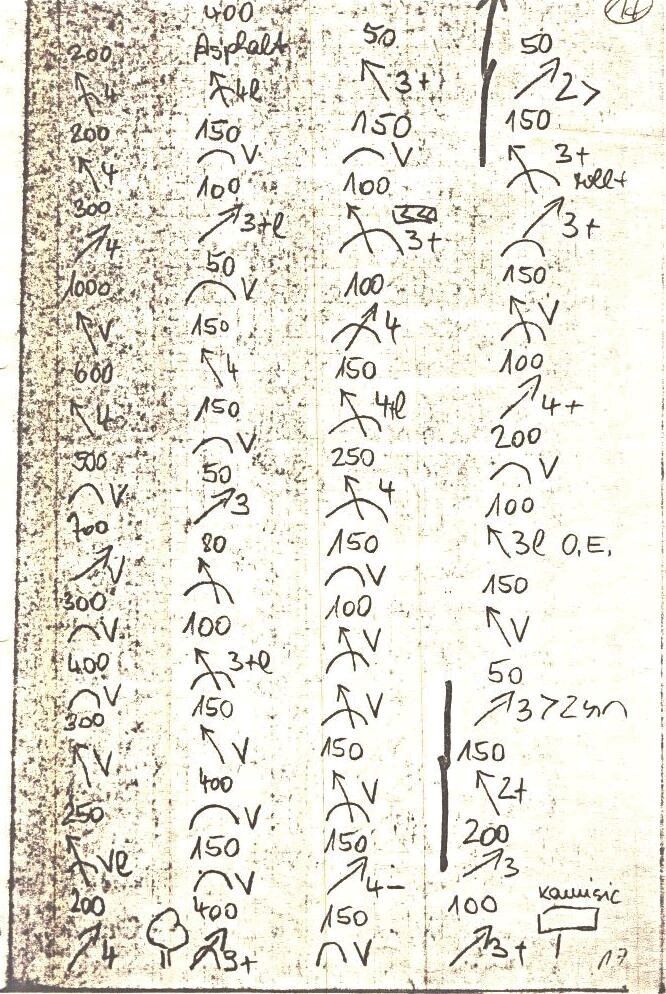 200
4
200
4
300
4
1000
V
600
4
500
V
700
V
300
V
400
V
300
V
250
Vl
200
4
400
Asphalt
4l
150
V
100
3+l
50
V
150
4
150
V
50
3
80
100
3+l
150
V
400
V
150
V
400
3+
50
3+
150
V
100
3+
100
4
150
4+l
250
4
150
V
100
V
V
150
V
150
4-
150
V
50
2>
150
3+
3+
150
V
100
4+
200
V
100
3l O.E.
150
V
50
3>2
150
2+
200
3
100
3+
17